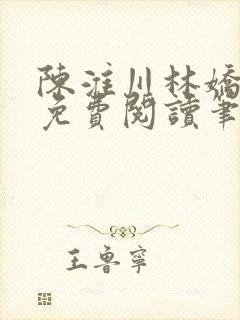 陳淮川林嬌
免費閱讀筆
王魯寧